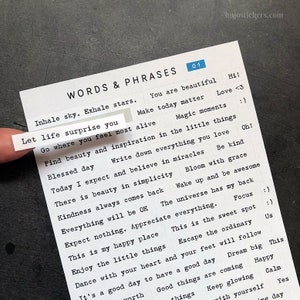 hajostickers.com
WORDS & PHRASES 01
Inhale sky. Exhale stars. You are beautiful Hi!
Let life surprise you Make today matter Love <3
Go where you feel most alive Magic moments :)
Find beauty and inspiration in the little things
Blessed day Write down everything you love Oh!
Today I expect and believe in miracles Be kind
There is beauty in simplicity Bloom with grace
Kindness always comes back Wake up and be awesome
Everything will be OK The universe has my back
Expect nothing. Appreciate everything. Focus :)
This is my happy place This is the sweet spot :)
Enjoy the little things Escape the ordinary Us
Dance with your heart and your feet will follow
It's a good day to have a good day Dream big This
Good things are coming Happy
things Keep glowing Calm
Yes